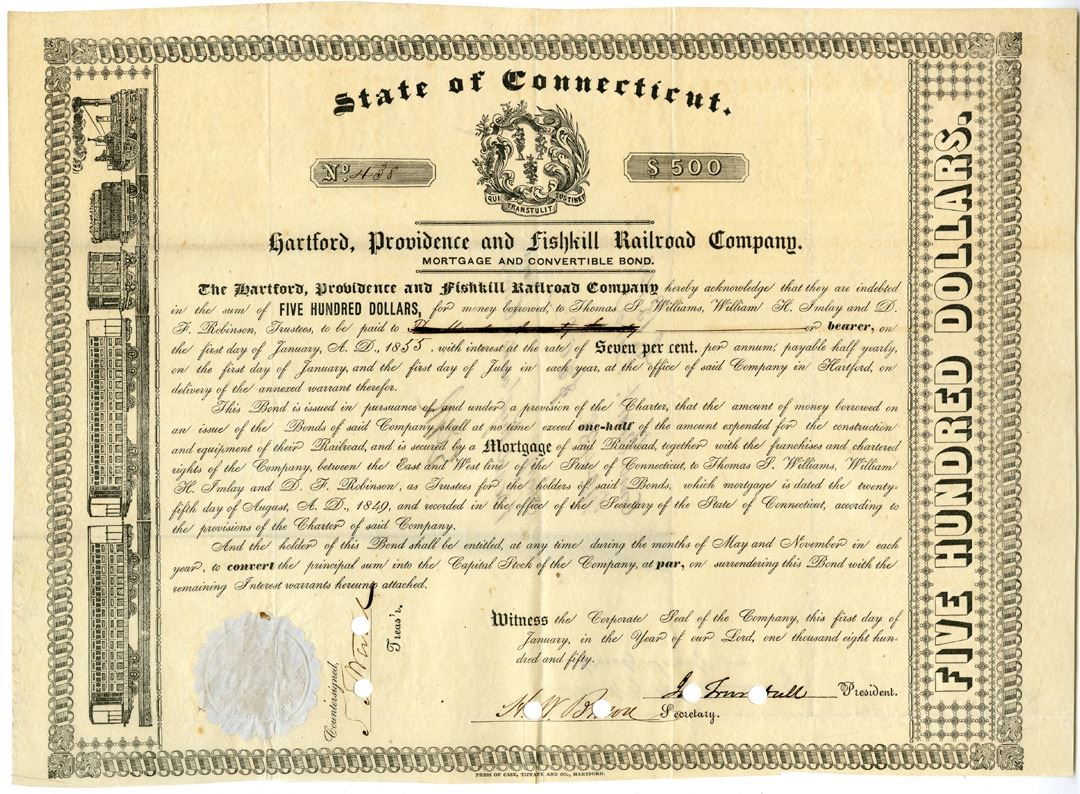 State of Connecticut.
No. 438
$ 500
QUI TRANSTULIT SUSTINET
Hartford, Providence and Fishkill Railroad Company.
MORTGAGE AND CONVERTIBLE BOND.
The Hartford, Providence and Fishkill Railroad Company hereby acknowledge that they are indebted
in the sum of FIVE HUNDRED DOLLARS, for money borrowed, to Thomas S. Williams, William H. Imlay and D.
F. Robinson, Trustees, to be paid to or bearer, on
the first day of January, A. D., 1855. with interest at the rate of Seven per cent. per annum, payable half yearly,
on the first day of January, and the first day of July in each year, at the office of said Company in Hartford, on
delivery of the annexed warrant therefor.
This Bond is issued in pursuance of, and under a provision of the Charter, that the amount of money borrowed on
an issue of the Bonds of said Company shall at no time exceed one-half of the amount expended for the construction
and equipment of their Railroad, and is secured by a Mortgage of said Railroad, together with the franchises and chartered
rights of the Company, between the East and West line of the State of Connecticut, to Thomas S. Williams, William
H. Imlay and D. F. Robinson, as Trustees for the holders of said Bonds, which mortgage is dated the twenty-
fifth day of August, A. D., 1849, and recorded in the office of the Secretary of the State of Connecticut, according to
the provisions of the Charter of said Company.
And the holder of this Bond shall be entitled, at any time during the months of May and November in each
year, to convert the principal sum into the Capital Stock of the Company, at par, on surrendering this Bond with the
remaining Interest warrants hereunto attached.
Witness the Corporate Seal of the Company, this first day of
January, in the Year of our Lord, one thousand eight hun-
dred and fifty.
President.
Secretary.
Countersigned,
Treas'r.
FIVE HUNDRED DOLLARS.
PRESS OF CASE, TIFFANY AND CO., HARTFORD.